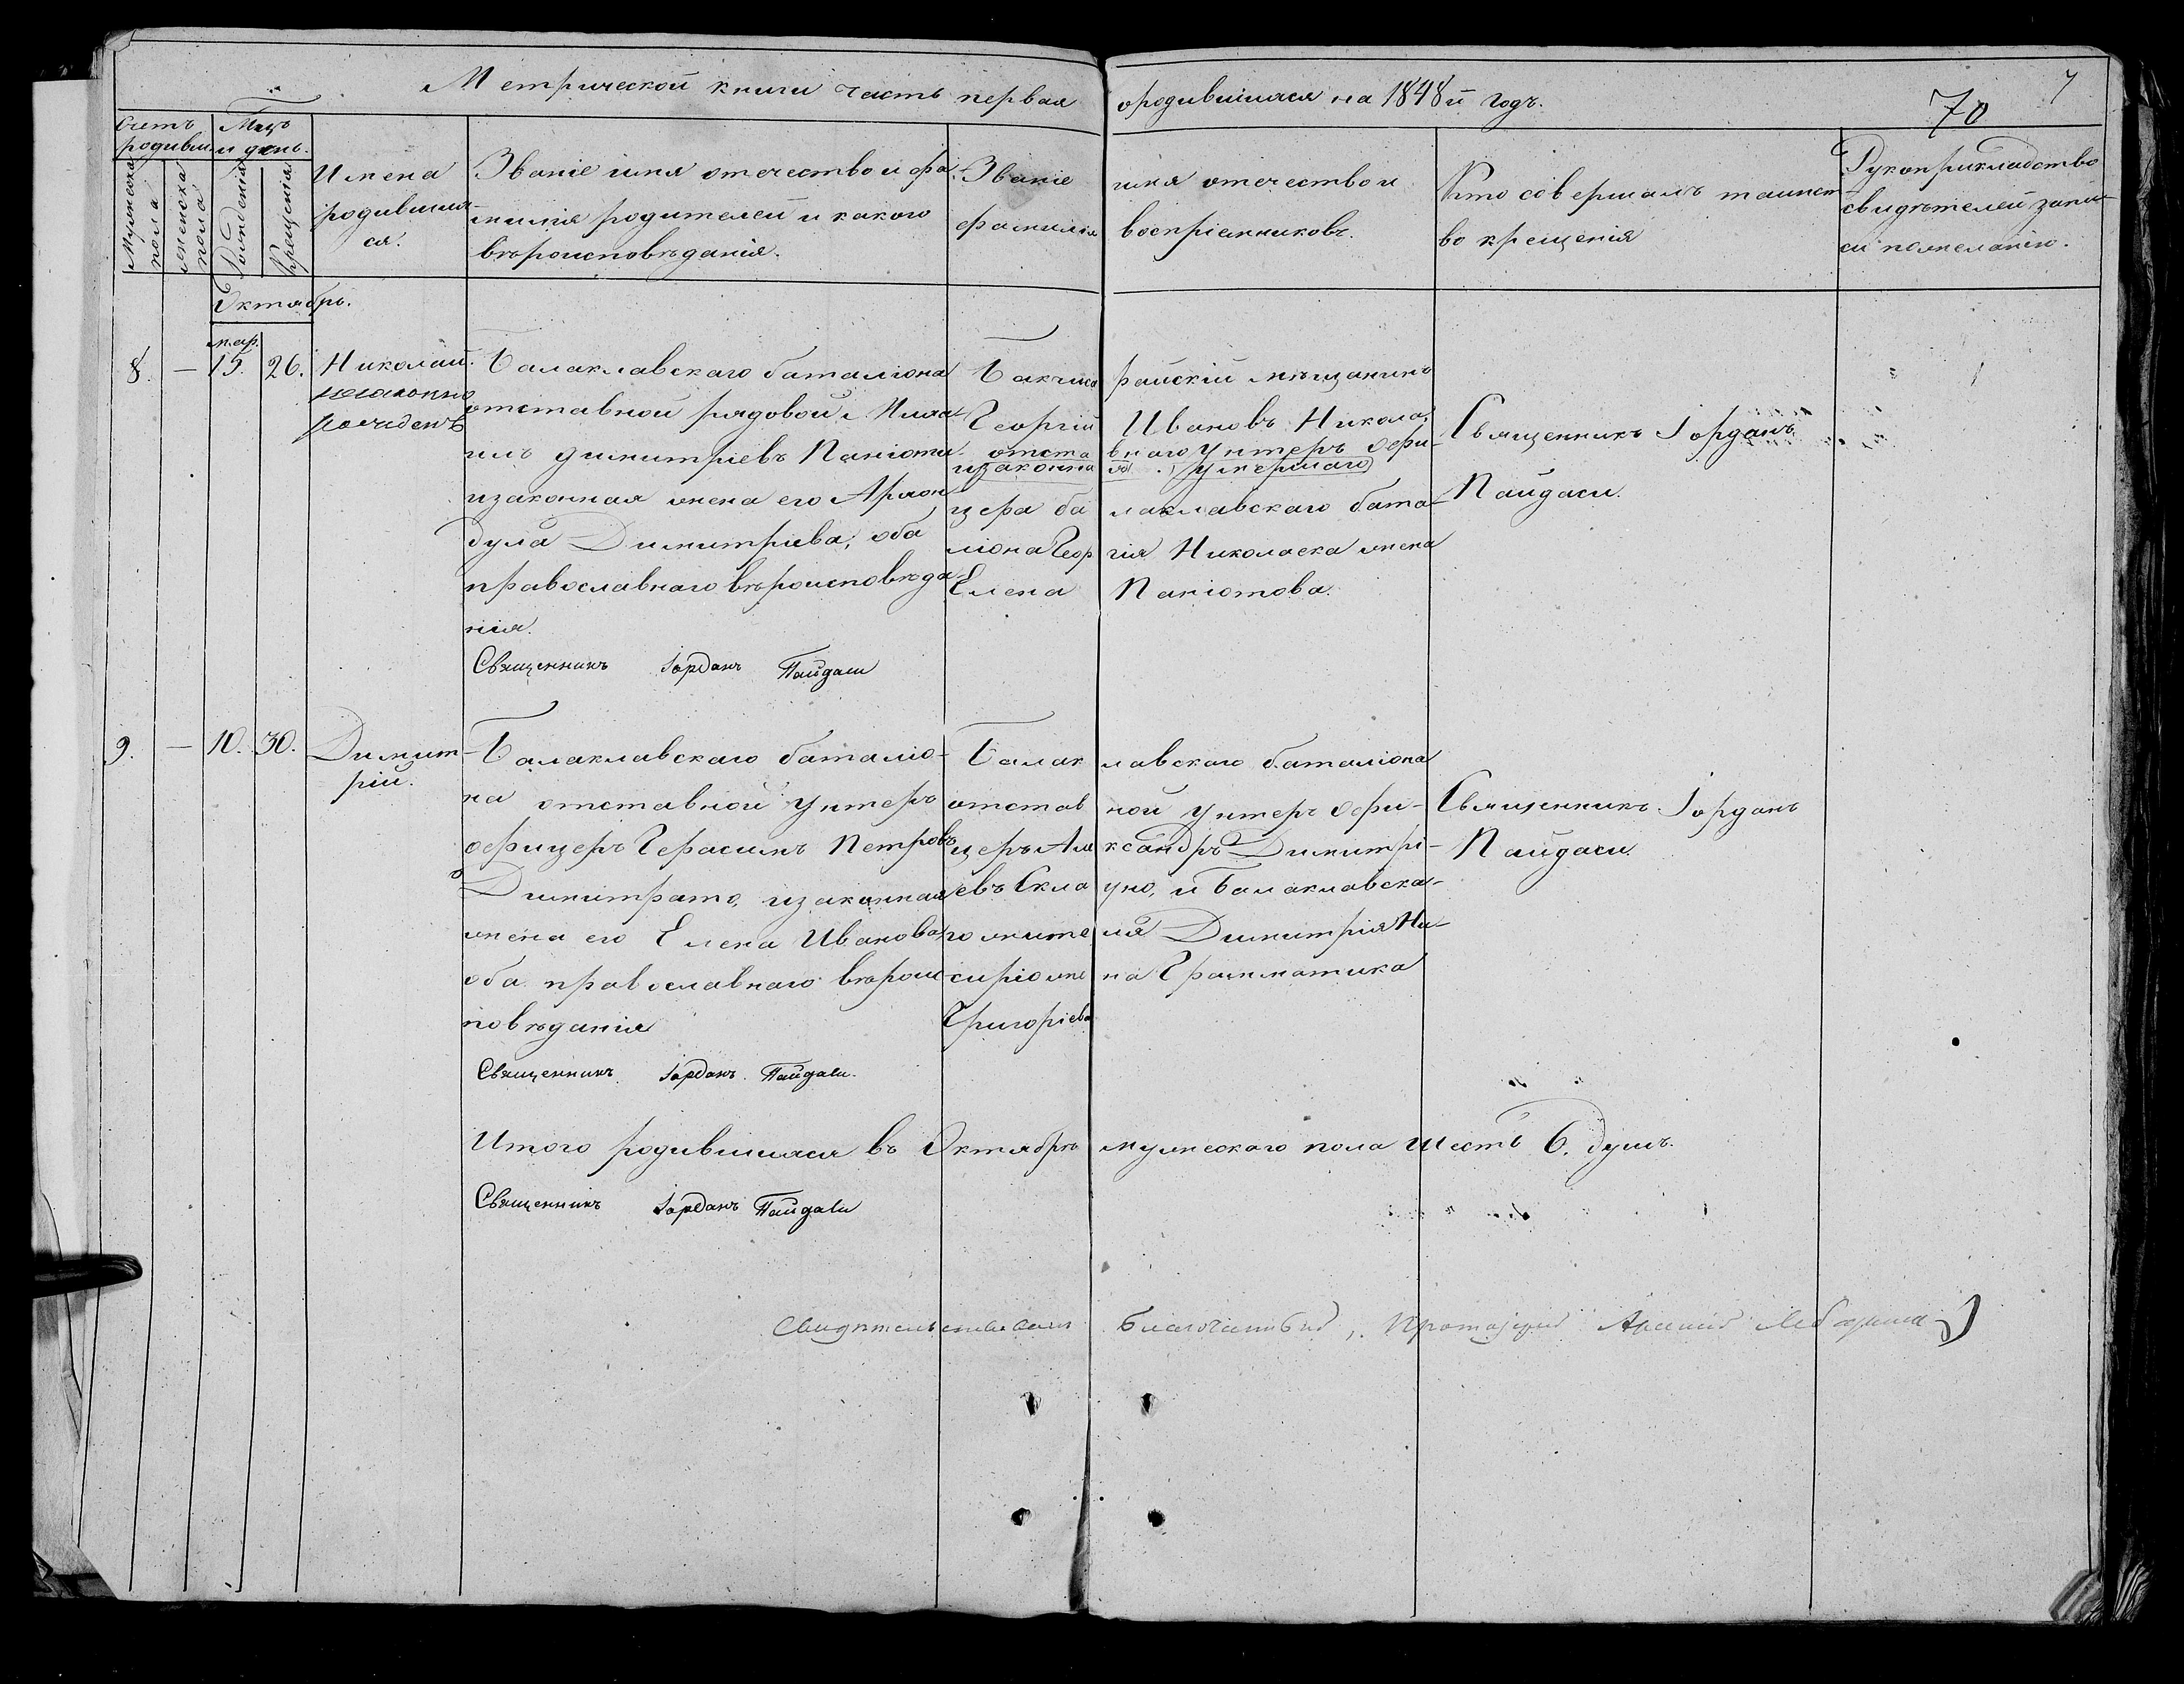 Метрической книги часть первая о родившихся на 1848й годъ.
70
7
Счетъ родивш.
Мѣц. и день.
Мужеска пола
женска пола
Рожденія
Крещенія
Имена
родивших
ся.
Званіе имя отечество и фа-
милія родителей и какого
вѣроисповѣданія.
Званіе имя отечество и
фамилія воспріемниковъ.
Кто совершалъ таинст
во крещенія
Рукоприкладство
свидѣтелей запи-
си по желанію.
Октябрь.
мар.
8. — 15. 26.
Николай.
незаконно
рожденъ
Балаклавскаго баталіона
отставной рядовой Миха-
илъ Димитріевъ Паніоти
и законная жена его Аріон
дула Димитріева, оба
православнаго вѣроисповѣда-
нія.
Священникъ Іорданъ Пайдаси
Бакчисарайскій мѣщанинъ
Георгій Ивановъ Никола,
отставнаго унтеръ офи-
и законная умершаго
цера балаклавскаго бата-
ліона Георгія Николаева жена
Елена Паніотова.
Священникъ Іорданъ
Пайдаси.
9. — 10. 30.
Димит-
рій.
Балаклавскаго баталіо-
на отставной унтеръ
офицеръ Герасимъ Петровъ
Димитрато, и законная
жена его Елена Иванова,
оба православнаго вѣроис-
повѣданія
Священникъ Іорданъ Пайдаси.
Балаклавскаго баталіона
отставной унтеръ офи-
церъ Александръ Димитрі-
евъ Склауно, и Балаклавска-
го жителя Димитрія Ни-
сиріо жена Грамматика
Григоріева
Священникъ Іорданъ
Пайдаси.
Итого родившихся въ Октябрѣ мужескаго пола шесть 6. душъ.
Священникъ Іорданъ Пайдаси
Свидѣтельствовалъ Благочинный, Протоіерей